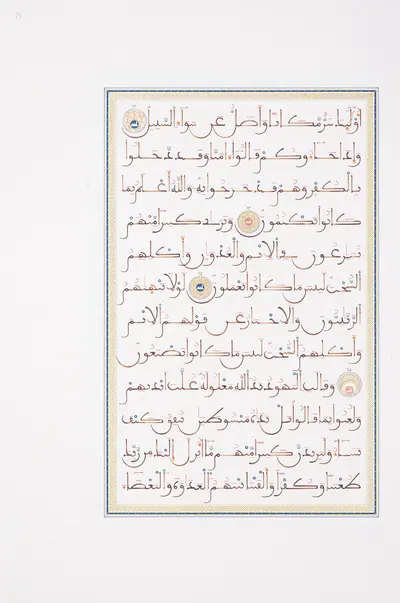 أولئك شر مكانا وأضل عن سواء السبيل
وإذا جاءوكم قالوا ءامنا وقد دخلوا
بالكفر وهم قد خرجوا به والله أعلم بما
كانوا يكتمون وترى كثيرا منهم
يسرعون في الإثم والعدون وأكلهم
السحت لبئس ما كانوا يعملون لولا ينهيهم
الربنيون والأحبار عن قولهم الإثم
وأكلهم السحت لبئس ما كانوا يصنعون
وقالت اليهود يد الله مغلولة غلت أيديهم
ولعنوا بما قالوا بل يداه مبسوطتن ينفق كيف
يشاء وليزيدن كثيرا منهم ما أنزل إليك من ربك
طغينا وكفرا وألقينا بينهم العدوة والبغضاء